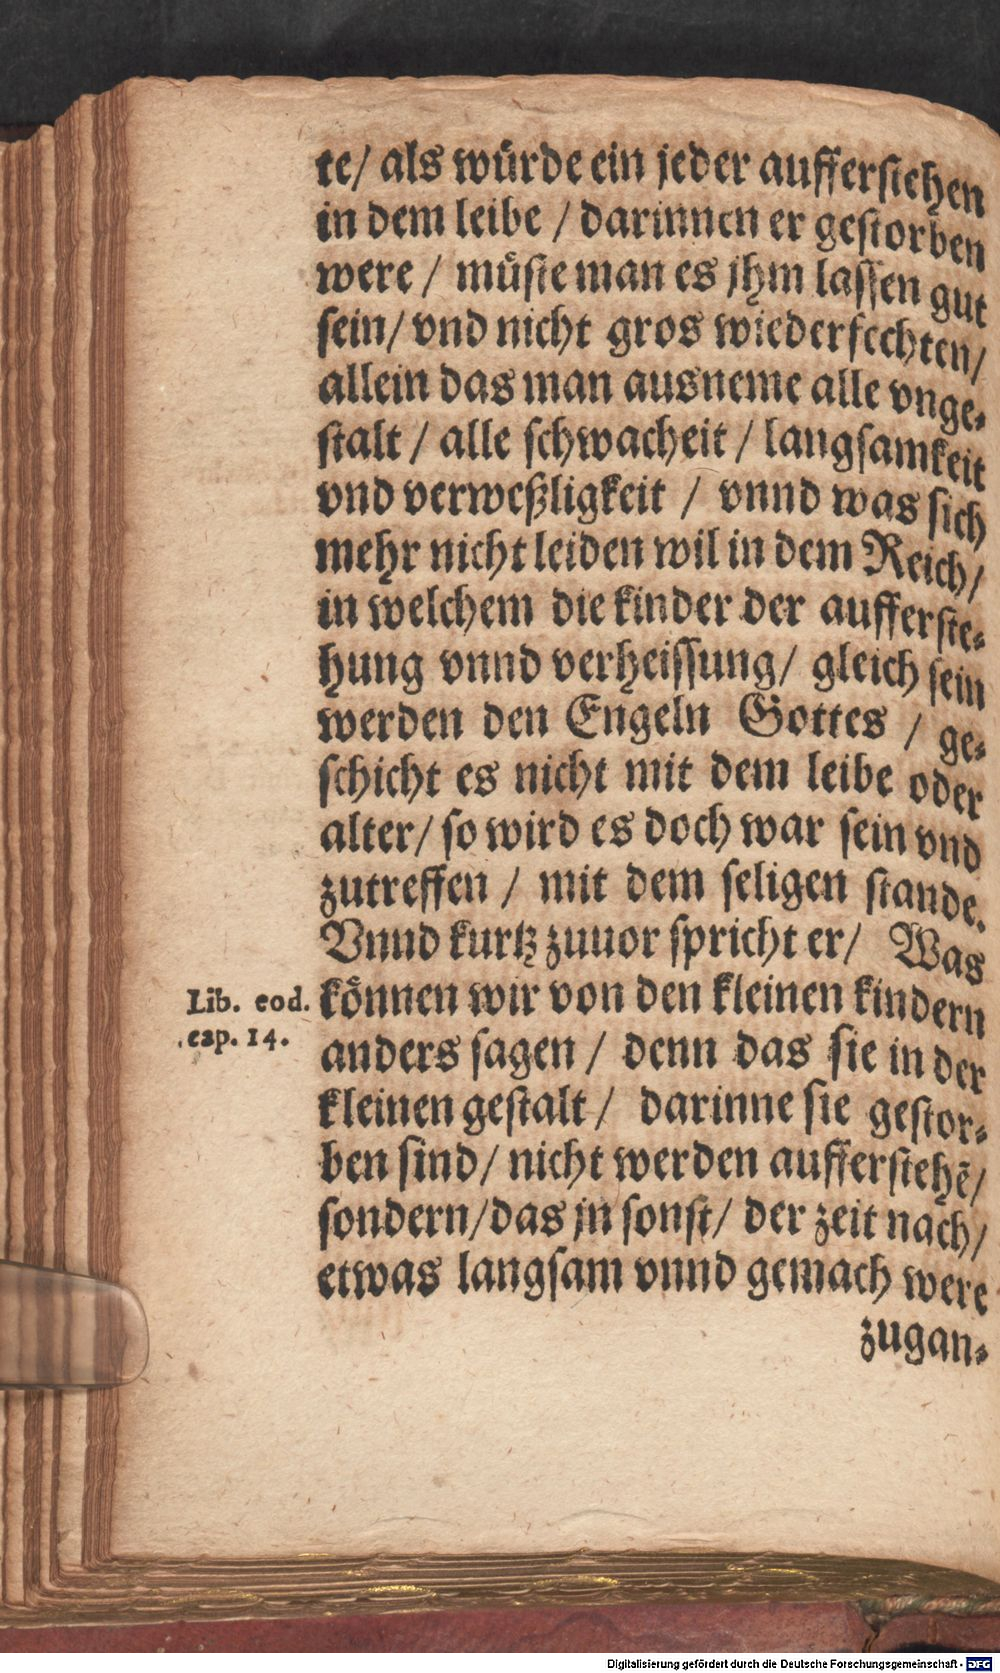 te/ als würde ein jeder aufferstehen
in dem leibe / darinnen er gestorben
were / müste man es jhm lassen gut
sein/ vnd nicht gros wiederfechten/
allein das man ausneme alle vnge-
stalt / alle schwacheit / langsamkeit
vnd verweßligkeit / vnnd was sich
mehr nicht leiden wil in dem Reich/
in welchem die kinder der aufferste-
hung vnnd verheissung/ gleich sein
werden den Engeln Gottes / ge-
schicht es nicht mit dem leibe oder
alter/ so wird es doch war sein vnd
zutreffen / mit dem seligen stande.
Vnnd kurtz zuuor spricht er/ Was
können wir von den kleinen kindern
anders sagen / denn das sie in der
kleinen gestalt / darinne sie gestor-
ben sind/ nicht werden auffersteh&#7869;/
sondern/das jn sonst/ der zeit nach/
etwas langsam vnnd gemach were
zugan-
Lib. eod.
cap. 14.
Digitalisierung gefördert durch die Deutsche Forschungsgemeinschaft - DFG